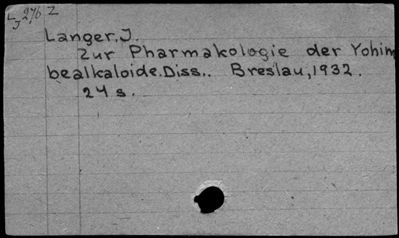 L 276 Z
J
Langer, J.
Zur Pharmakologie der Yohim
bealkaloide. Diss.. Breslau, 1932.
24 s.